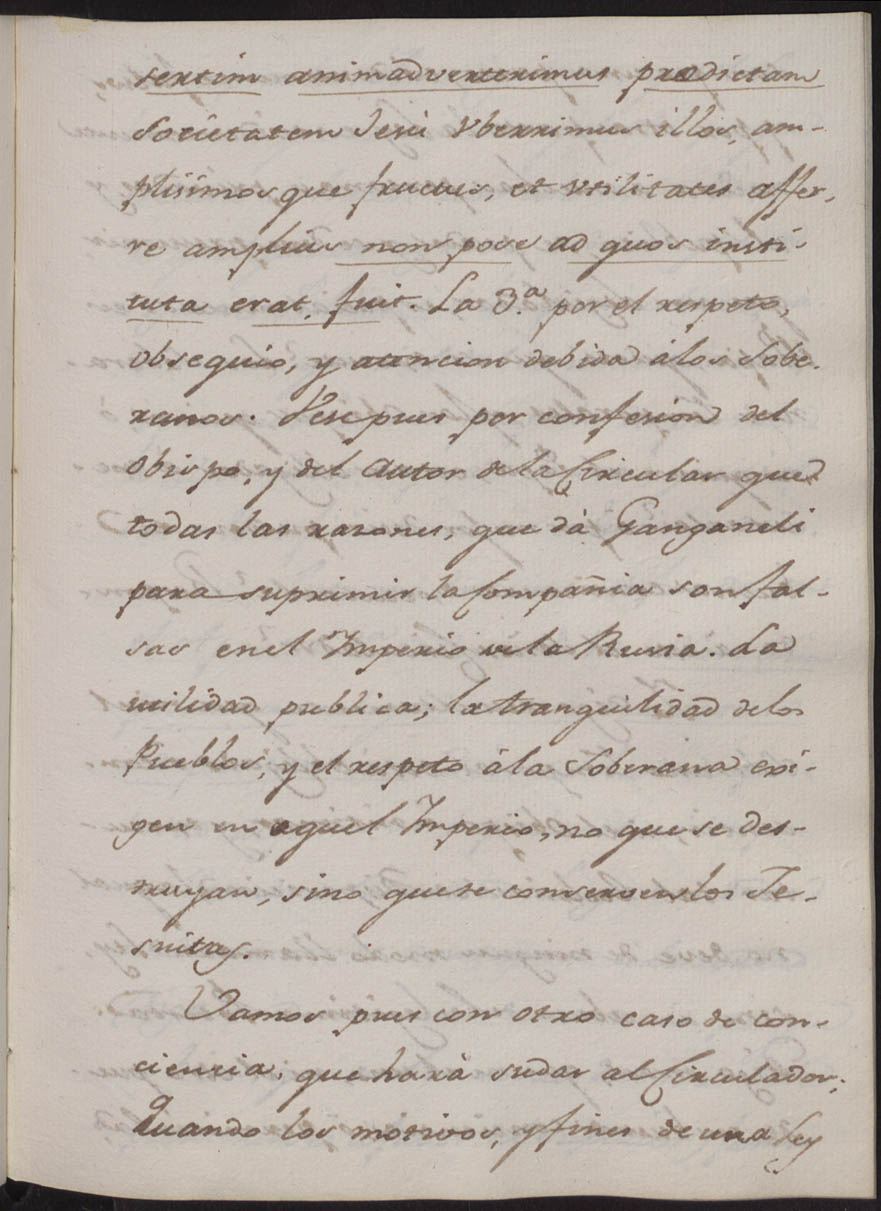 sertim animadverterimus prædictam
Societatem Jesu Vberrimus illos, am-
plissimosque fructus, et vtilitates affer-
re amplius non posse ad quos insti-
tuta erat, fuit. La 3.ª por el respeto,
obsequio, y atencion debida álos Sobe-
ranos. Vese pues por confesion del
Obispo, y del Autor dela Circular que
todas las razones, que dà Ganganeli
para suprimir la Compañia son fal-
sas enel Imperio dela Rusia. La
utilidad publica; la tranquilidad delos
Pueblos, y el respeto àla Soberana exi-
gen en aquel Imperio, no que se des-
truyan, sino que se conserven los Je-
suitas.
Vamos pues con otro caso de con-
ciencia, que harà sudar al Circulador;
Quando los motivos, y fines de una Ley